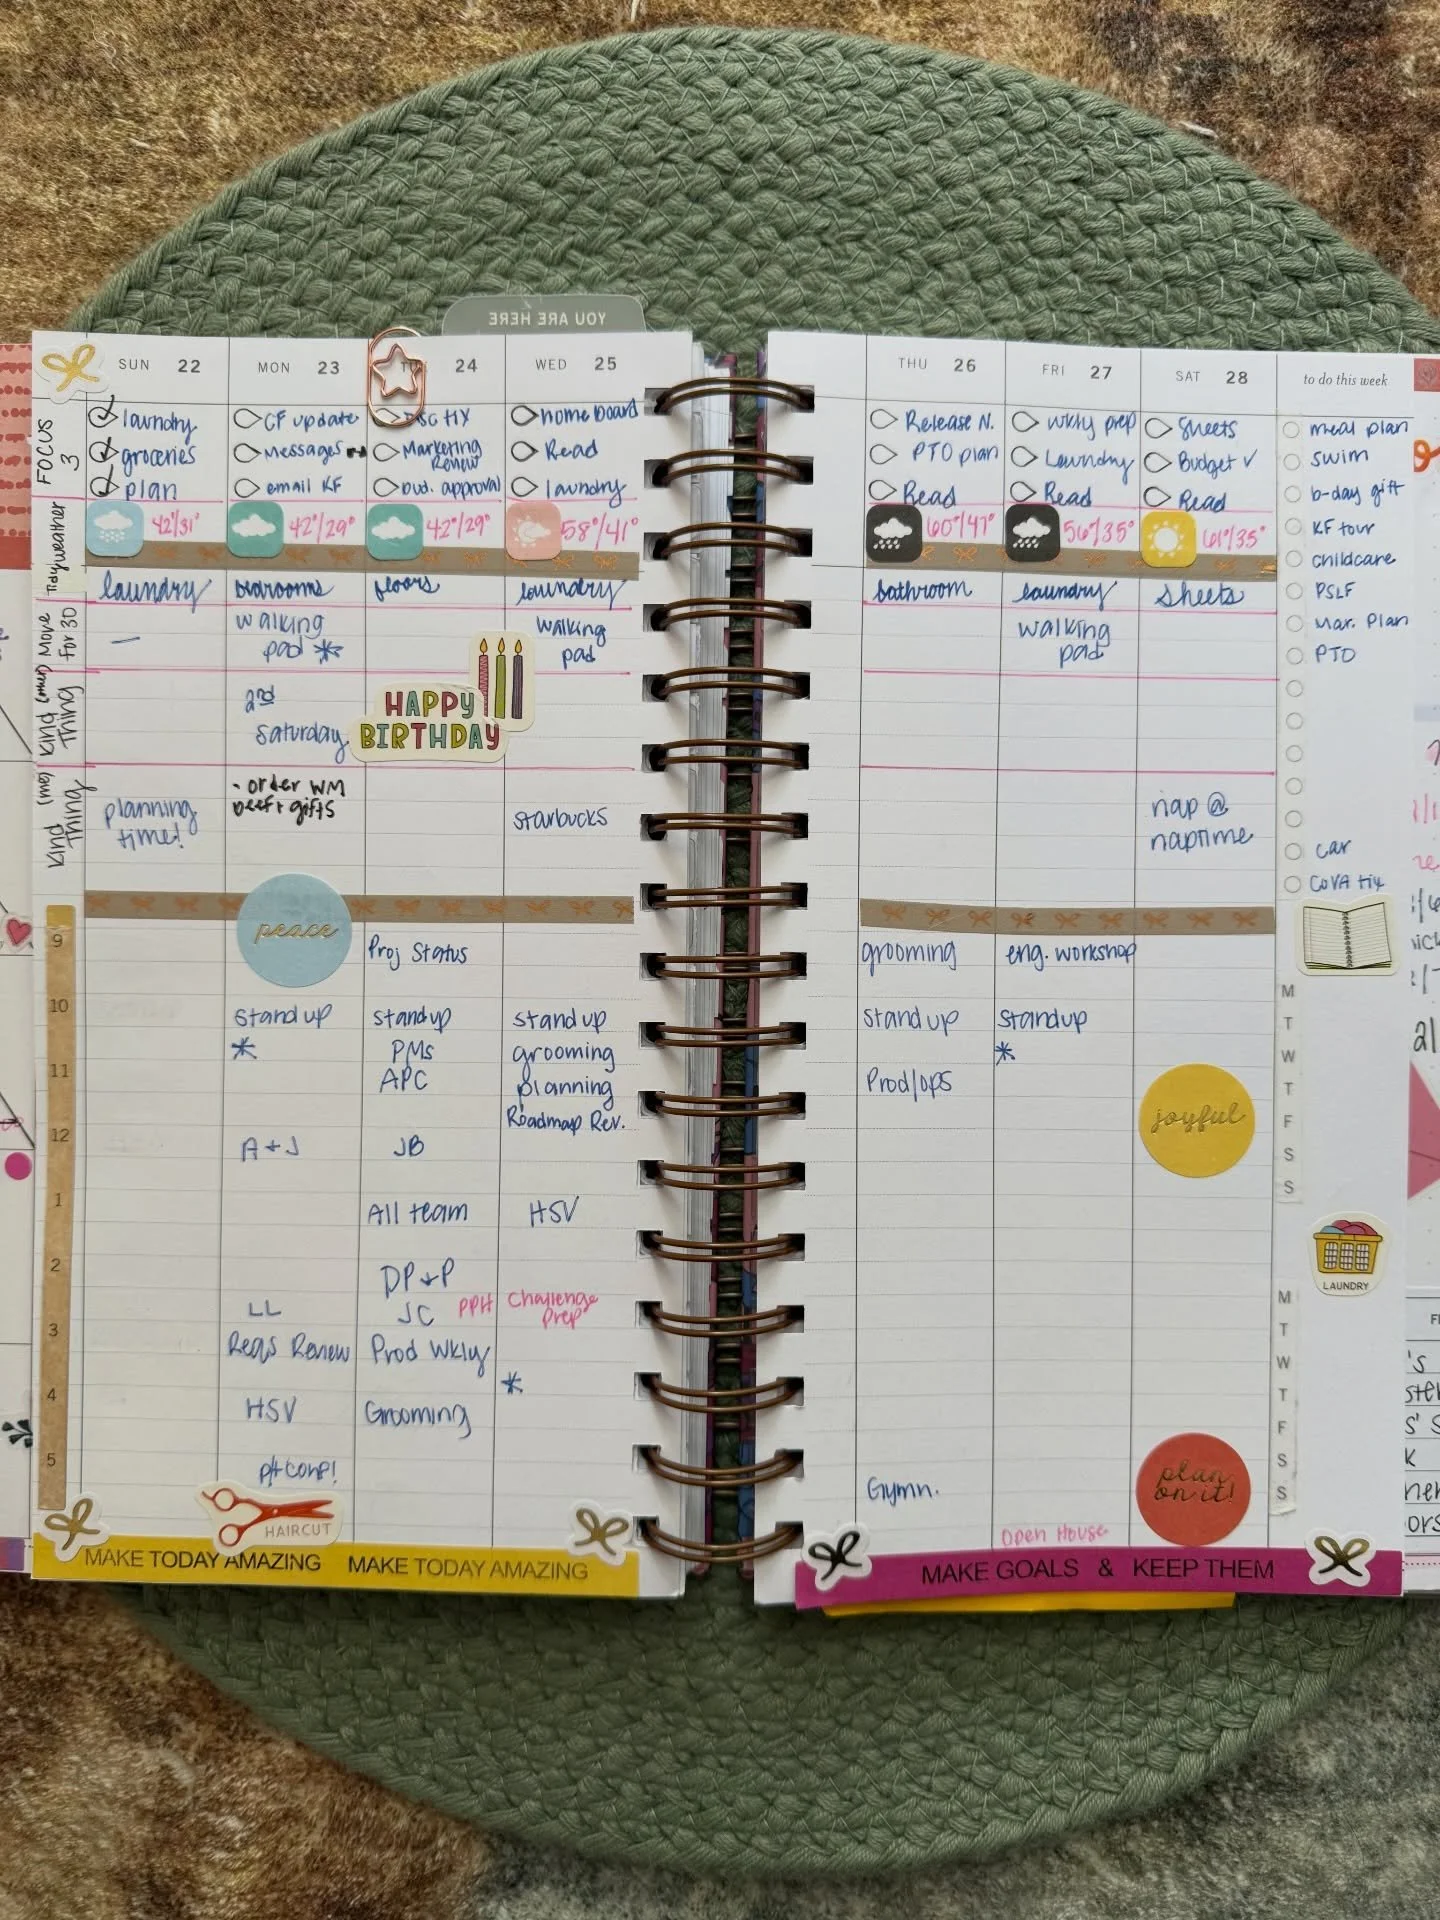 YOU ARE HERE
SUN 22
MON 23
24
WED 25
THU 26
FRI 27
SAT 28
to do this week
FOCUS
3
laundry
groceries
plan
CF update
Messages
email KF
Marketing
Review
bud. approval
home board
Read
laundry
Release N.
PTO plan
Read
wkly prep
Laundry
Read
Sheets
Budget ✓
Read
meal plan
swim
b-day gift
KF tour
childcare
PSLF
Mar. Plan
PTO
car
COVA tix
Tidy weather
42°/31°
42°/29°
42°/29°
58°/41°
60°/47°
56°/35°
61°/35°
laundry
bedrooms
floors
laundry
bathroom
laundry
sheets
Move
for 30
—
walking
pad *
walking
pad
walking
pad
Kind
Thing
2nd
Saturday
HAPPY
BIRTHDAY
Kind (me)
Thing
planning
time!
- order WM
beef + gifts
Starbucks
nap @
naptime
peace
9
Proj Status
grooming
eng. workshop
10
Standup
*
standup
PMs
standup
grooming
standup
standup
*
11
APC
planning
Roadmap Rev.
Prod/ops
joyful
12
A + J
JB
1
All team
HSV
2
DP + P
LL
JC
PPH
Challenge
Prep
3
Reqs Review
Prod Wkly
*
4
HSV
Grooming
5
Gymn.
Open House
plan
on it!
M
T
W
T
F
S
S
LAUNDRY
M
T
W
T
F
S
S
HAIRCUT
MAKE TODAY AMAZING MAKE TODAY AMAZING
MAKE GOALS & KEEP THEM